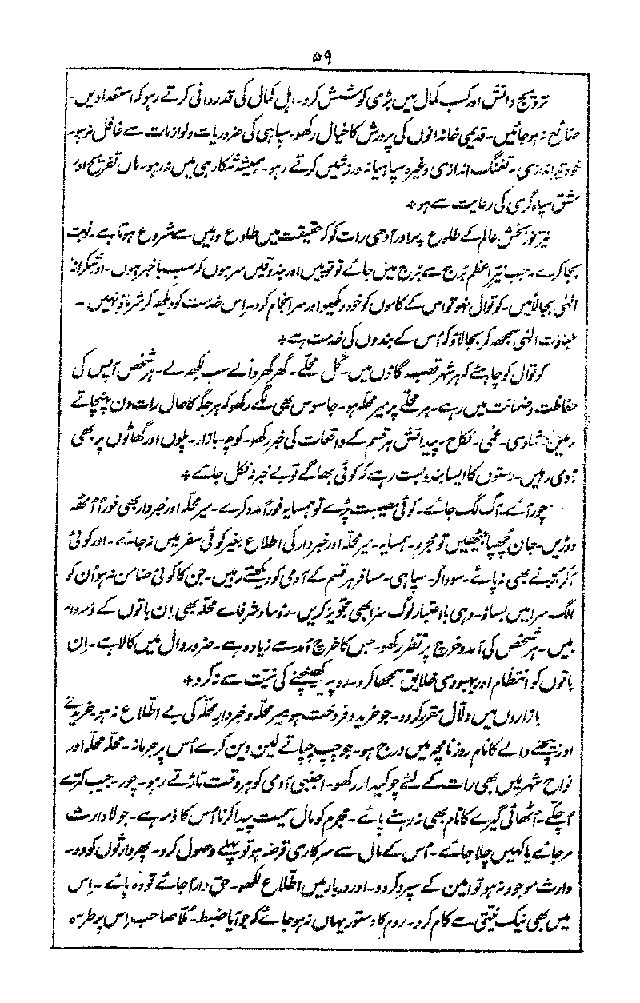 ۵۹
ترویج دانش اور کسب کمال میں بڑی کوشش کرو۔ اہل کمال کی قدردانی کرتے رہو کہ استعدادیں۔
ضائع نہ ہو جائیں۔ قدیمی خاندانوں کی پرورش کا خیال رکھو۔ سپاہی کی ضروریات و لوازمات سے غافل نہ ہو۔
خود تیر اندازی۔ تفنگ اندازی وغیرہ سپاہیانہ ورزشیں کرتے رہو۔ ہمیشہ شکار ہی میں نہ رہو۔ ہاں تفریح اور
مشق سپاہ گری کی رعایت سے ہو۔
نیر نور بخش عالم کے طلوع پر اور آدھی رات کو کہ حقیقت میں طلوع وہیں سے شروع ہوتا ہے۔ نوبت
بجا کرے۔ جب نیر اعظم برج سے برج میں جائے تو توپیں اور بندوقیں سر ہوں کہ سب باخبر ہوں۔ اور شکرانۂ
الٰہی بجا لائیں۔ کوتوال نہ ہو تو اس کے کاموں کو خود دیکھو اور سرانجام کرو۔ اس خدمت کو دیکھ کر شرماؤ نہیں۔
عبادت الٰہی سمجھ کر بجا لاؤ کہ اُس کے بندوں کی خدمت ہے۔
کوتوال کو چاہئے کہ ہر شہر قصبہ گاؤں میں۔ کل محلّے۔ گھر گھر والے سب لکھ لے۔ ہر شخص آپس کی
حفاظت و ضمانت میں رہے۔ ہر محلّے پر میر محلہ ہو۔ جاسوس بھی لگے رکھو کہ ہر جگہ کا حال رات دن پہنچاتے
رہیں۔ شادی۔ غمی۔ نکاح۔ پیدائش ہر قسم کے واقعات کی خبر رکھو۔ کوچہ۔ بازار۔ پلوں اور گھاٹوں پر بھی
آدمی رہیں۔ رستوں کا ایسا بندوبست رہے کہ کوئی بھاگے تو بے خبر نہ نکل جائے۔
چور آئے۔ آگ لگ جائے۔ کوئی مصیبت پڑے تو ہمسایہ فوراً مدد کرے۔ میر محلہ اور خبردار بھی فوراً اُٹھ
دوڑیں۔ جان چھپا بیٹھیں تو مجرم۔ ہمسایہ۔ میر محلہ اور خبردار کی اطلاع بغیر کوئی سفر میں نہ جائے۔ اور کوئی
آ کر اُترنے بھی نہ پائے۔ سوداگر۔ سپاہی۔ مسافر ہر قسم کے آدمی کو دیکھتے رہیں۔ جن کا کوئی ضامن نہ ہو اُن کو
الگ سرا میں بساؤ۔ وہی بااعتبار لوگ سزا بھی تجویز کریں۔ رؤسا و شرفائے محلہ بھی ان باتوں کے ذمہ وار
ہیں۔ ہر شخص کی آمد و خرچ پر نظر رکھو۔ جس کا خرچ آمد سے زیادہ ہے۔ ضرور دال میں کالا ہے۔ ان
باتوں کو انتظام اور بہبودی خلایق سمجھا کرو۔ روپیہ کھینچنے کی نیت سے نہ کرو۔
بازاروں میں دلّال مقرر کرو۔ جو خرید و فروخت ہو میر محلہ و خبردار محلہ کی بے اطلاع نہ ہو۔ خریدنے
اور بیچنے والے کا نام روزنامچہ میں درج ہو۔ جو چپ چپاتے لین دین کرے اُس پر جرمانہ۔ محلہ محلہ اور
نواح شہر میں بھی رات کے لئے چوکیدار رکھو۔ اجنبی آدمی کو ہر وقت تاڑتے رہو۔ چور۔ جیب کترے
اُچکّے۔ اُٹھائی گیرے کا نام بھی نہ رہنے پائے۔ مجرم کو مال سمیت پیدا کرنا اُس کا ذمہ ہے۔ جو لاوارث
مر جائے یا کہیں چلا جائے۔ اُس کے مال سے سرکاری قرضہ ہو تو پہلے وصول کرو۔ پھر وارثوں کو دو۔
وارث موجود نہ ہو تو امین کے سپرد کر دو۔ اور دربار میں اطلاع لکھو۔ حق دار آ جائے تو وہ پائے۔ اس
میں بھی نیک نیتی سے کام کرو۔ روم کا دستور یہاں نہ ہو جائے کہ جو آیا ضبط۔ مُلّا صاحب اس پر طرہ